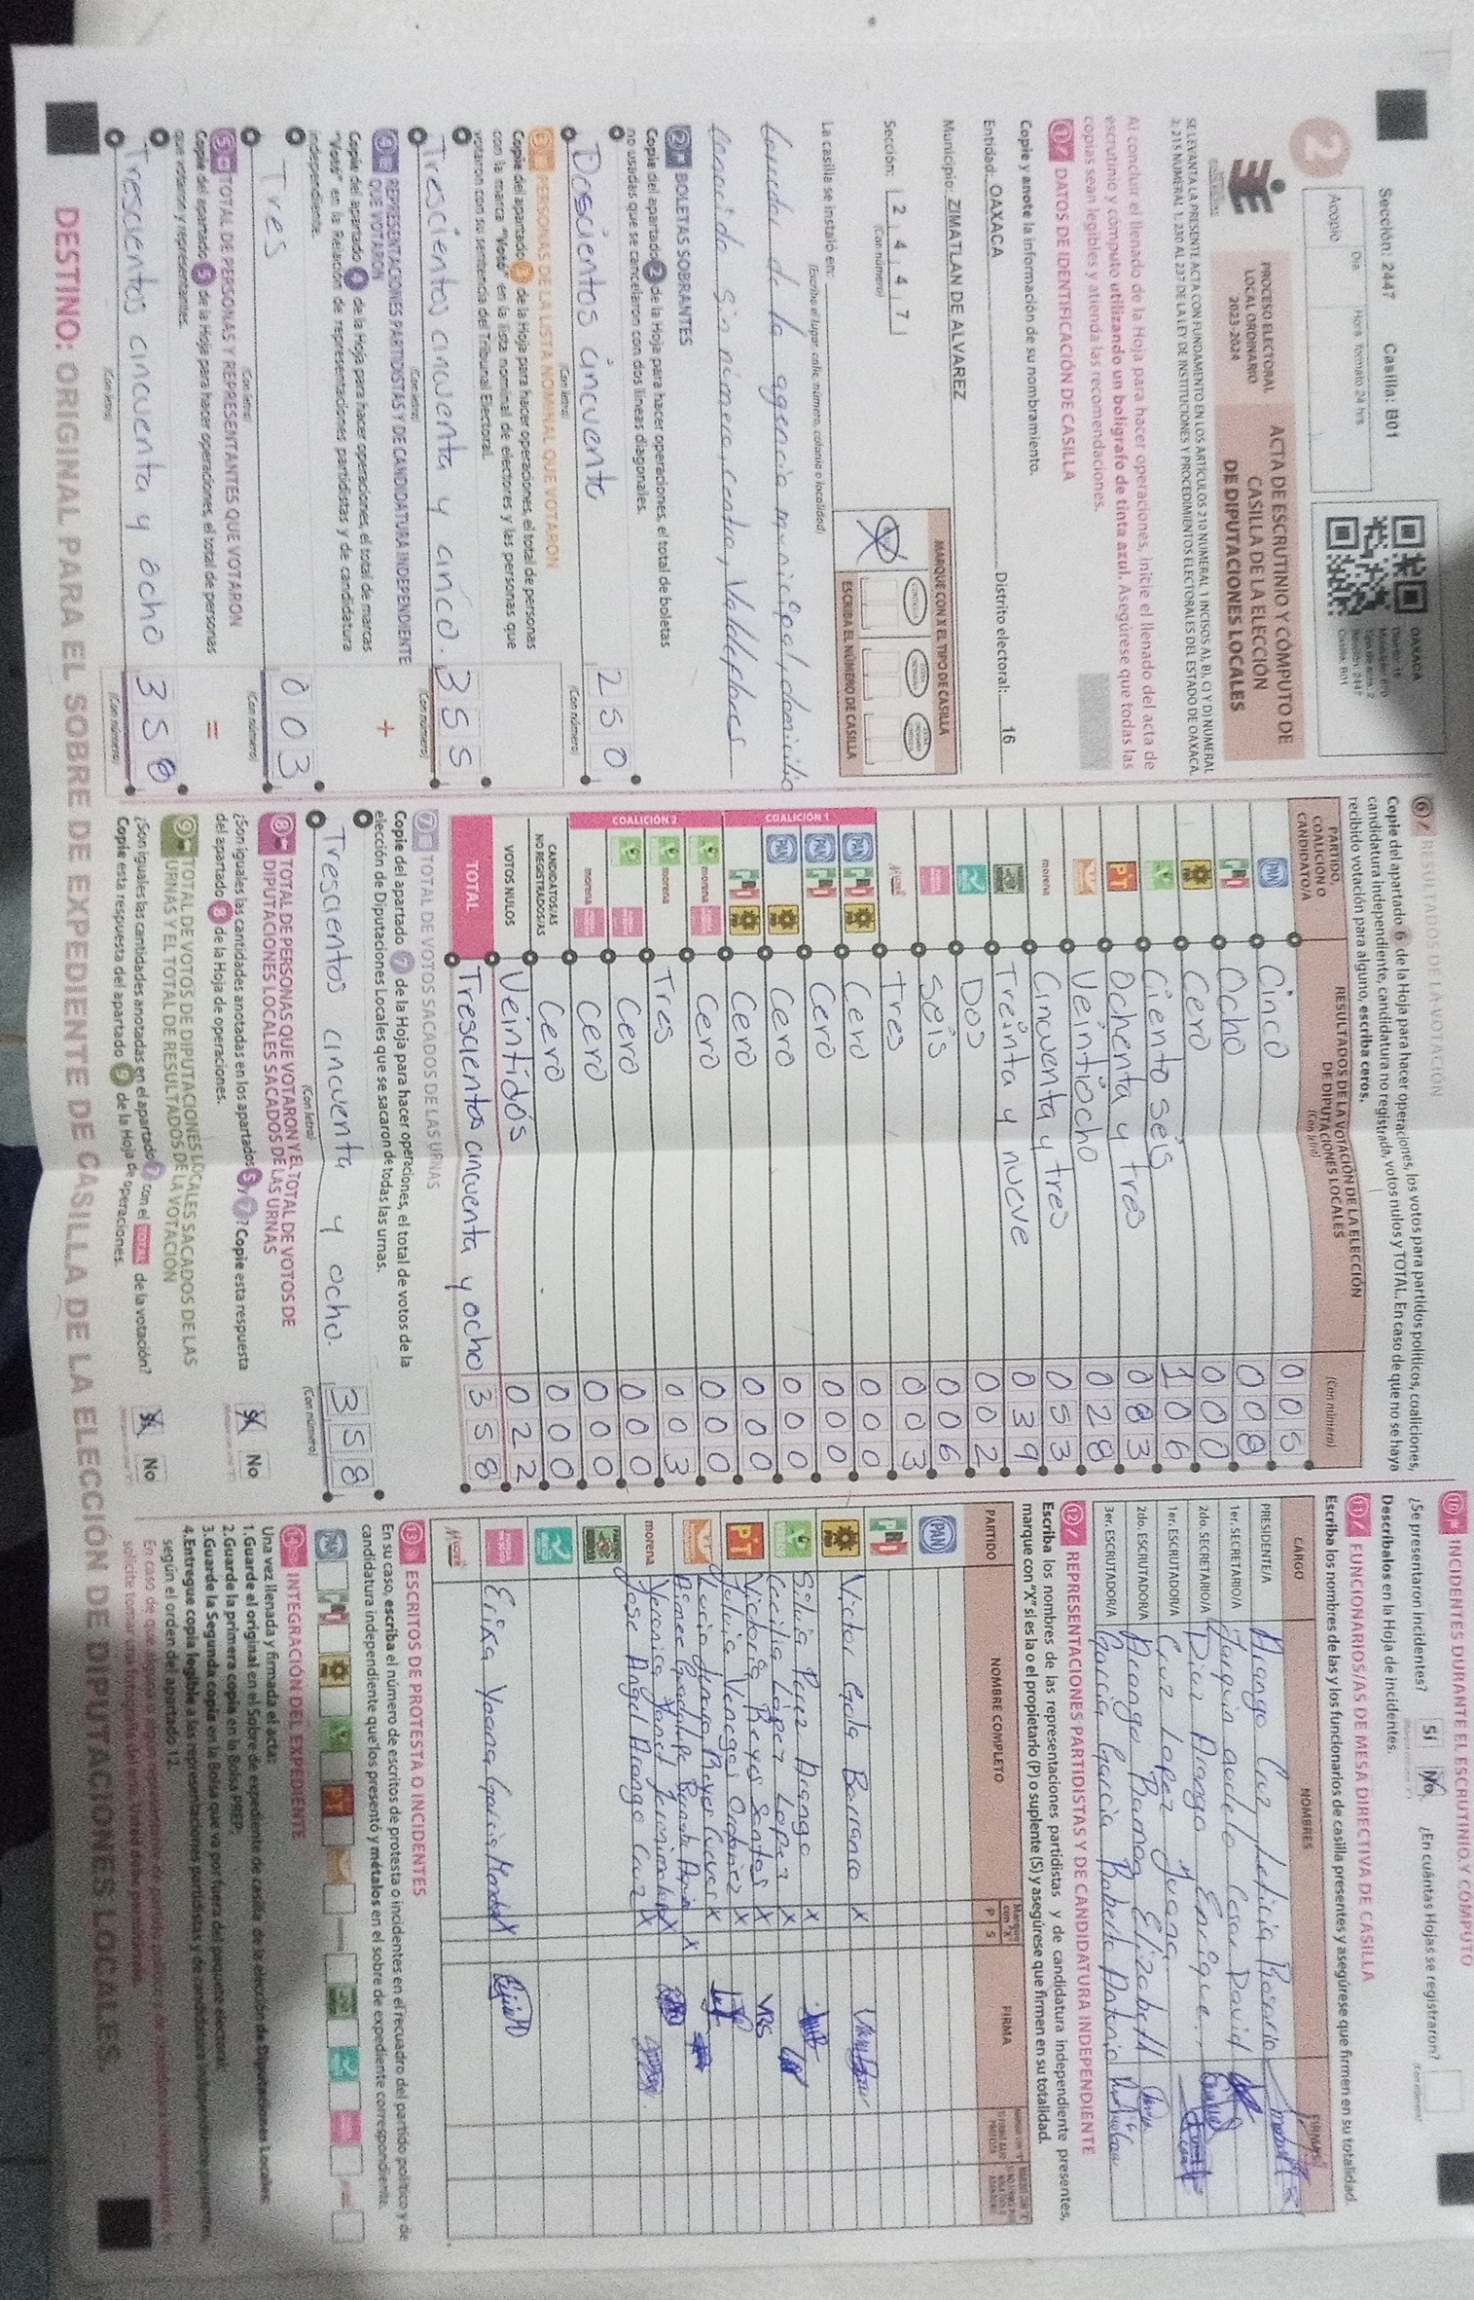 Sección: 2447 Casilla: B01
OAXACA
2
Acopio
Día
Hora formato 24 hrs
PROCESO ELECTORAL
LOCAL ORDINARIO
2023-2024
ACTA DE ESCRUTINIO Y CÓMPUTO DE
CASILLA DE LA ELECCIÓN
DE DIPUTACIONES LOCALES
SE LEVANTA LA PRESENTE ACTA CON FUNDAMENTO EN LOS ARTÍCULOS 210 NUMERAL 1 INCISOS A), B), C) Y D) NUMERAL
2; 215 NUMERAL 1; 230 AL 237 DE LA LEY DE INSTITUCIONES Y PROCEDIMIENTOS ELECTORALES DEL ESTADO DE OAXACA.
Al concluir el llenado de la Hoja para hacer operaciones, inicie el llenado del acta de
escrutinio y cómputo utilizando un bolígrafo de tinta azul. Asegúrese que todas las
copias sean legibles y atienda las recomendaciones.
1 DATOS DE IDENTIFICACIÓN DE CASILLA
Copie y anote la información de su nombramiento.
Entidad: OAXACA Distrito electoral: 16
Municipio: ZIMATLAN DE ALVAREZ
Sección: 2 4 4 7
(Con número)
MARQUE CON X EL TIPO DE CASILLA
ESCRIBA EL NÚMERO DE CASILLA
La casilla se instaló en:
(Escriba el lugar, calle, número, colonia o localidad)
de la agencia municipal, domicilio
conocido sin número, centro, Valdeflores
2 BOLETAS SOBRANTES
Copie del apartado 2 de la Hoja para hacer operaciones, el total de boletas
no usadas que se cancelaron con dos líneas diagonales.
Doscientos cincuenta 2 5 0
(Con letra) (Con número)
3 PERSONAS DE LA LISTA NOMINAL QUE VOTARON
Copie del apartado 3 de la Hoja para hacer operaciones, el total de personas
con la marca "Votó" en la lista nominal de electores y las personas que
votaron con su sentencia del Tribunal Electoral.
Trescientos cincuenta y cinco. 3 5 5
(Con letra) (Con número)
4 REPRESENTACIONES PARTIDISTAS Y DE CANDIDATURA INDEPENDIENTE
QUE VOTARON +
Copie del apartado 4 de la Hoja para hacer operaciones, el total de marcas
"Votó" en la Relación de representaciones partidistas y de candidatura
independiente.
Tres 0 0 3
(Con letra) (Con número)
5 TOTAL DE PERSONAS Y REPRESENTANTES QUE VOTARON =
Copie del apartado 5 de la Hoja para hacer operaciones, el total de personas
que votaron y representantes.
Trescientos cincuenta y ocho 3 5 8
(Con letra) (Con número)
6 RESULTADOS DE LA VOTACIÓN
Copie del apartado 6 de la Hoja para hacer operaciones, los votos para partidos políticos, coaliciones,
candidatura independiente, candidatura no registrada, votos nulos y TOTAL. En caso de que no se haya
recibido votación para alguno, escriba ceros.
PARTIDO,
COALICIÓN O
CANDIDATO/A
RESULTADOS DE LA VOTACIÓN DE LA ELECCIÓN
DE DIPUTACIONES LOCALES
(Con letra)
(Con número)
PAN Cinco 0 0 5
PRI Ocho 0 0 8
PRD Cero 0 0 0
Ciento seis 1 0 6
PT Ochenta y tres 0 8 3
Veintiocho 0 2 8
morena Cincuenta y tres 0 5 3
Treinta y nueve 0 3 9
Dos 0 0 2
Seis 0 0 6
Mujer tres 0 0 3
COALICIÓN 1
PAN PRI PRD Cero 0 0 0
PAN PRI Cero 0 0 0
PAN PRD Cero 0 0 0
PRI PRD Cero 0 0 0
COALICIÓN 2
morena Cero 0 0 0
morena Tres 0 0 3
Cero 0 0 0
morena Cero 0 0 0
CANDIDATOS/AS
NO REGISTRADOS/AS Cero 0 0 0
VOTOS NULOS Veintidós 0 2 2
TOTAL Trescientos cincuenta y ocho 3 5 8
7 TOTAL DE VOTOS SACADOS DE LAS URNAS
Copie del apartado 7 de la Hoja para hacer operaciones, el total de votos de la
elección de Diputaciones Locales que se sacaron de todas las urnas.
Trescientos cincuenta y ocho. 3 5 8
(Con letra) (Con número)
8 TOTAL DE PERSONAS QUE VOTARON Y EL TOTAL DE VOTOS DE
DIPUTACIONES LOCALES SACADOS DE LAS URNAS
¿Son iguales las cantidades anotadas en los apartados 5 y 7? Copie esta respuesta
del apartado 8 de la Hoja de operaciones.
Sí No
9 TOTAL DE VOTOS DE DIPUTACIONES LOCALES SACADOS DE LAS
URNAS Y EL TOTAL DE RESULTADOS DE LA VOTACIÓN
¿Son iguales las cantidades anotadas en el apartado 7 con el TOTAL de la votación?
Copie esta respuesta del apartado 9 de la Hoja de operaciones.
Sí No
10 INCIDENTES DURANTE EL ESCRUTINIO Y CÓMPUTO
¿Se presentaron incidentes? Sí No ¿En cuántas Hojas se registraron?
(Con número)
Descríbalos en la Hoja de incidentes.
11 FUNCIONARIOS/AS DE MESA DIRECTIVA DE CASILLA
Escriba los nombres de las y los funcionarios de casilla presentes y asegúrese que firmen en su totalidad.
CARGO NOMBRES FIRMAS
PRESIDENTE/A Arango Cruz Leticia Rosario
1er. SECRETARIO/A Jarquin audelo Cesar David
2do. SECRETARIO/A Diaz Arango Enrique.
1er. ESCRUTADOR/A Cruz Lopez Juana
2do. ESCRUTADOR/A Arango Ramon Elizabeth
3er. ESCRUTADOR/A Garcia Garcia Roberto Antonio
12 REPRESENTACIONES PARTIDISTAS Y DE CANDIDATURA INDEPENDIENTE
Escriba los nombres de las representaciones partidistas y de candidatura independiente presentes,
marque con "X" si es la o el propietario (P) o suplente (S) y asegúrese que firmen en su totalidad.
PARTIDO NOMBRE COMPLETO P S FIRMA
PAN
PRI
PRD Victor Barranco X
Silvia Perez Arango X
Cecilia Lopez Lopez X
PT Victoria Reyes Santos X VRS
Julia Venegas X
Reyes Cuevas X
Aimee Guadalupe X
morena Veronica Janet X
Jose Angel Arango Cruz X
Erika Yoana Garcia X
Mujer
13 ESCRITOS DE PROTESTA O INCIDENTES
En su caso, escriba el número de escritos de protesta o incidentes en el recuadro del partido político y de
candidatura independiente que los presentó y métalos en el sobre de expediente correspondiente.
14 INTEGRACIÓN DEL EXPEDIENTE
Una vez llenada y firmada el acta:
1.Guarde el original en el Sobre de expediente de casilla de la elección de Diputaciones Locales.
2.Guarde la primera copia en la Bolsa PREP.
3.Guarde la Segunda copia en la Bolsa que va por fuera del paquete electoral.
4.Entregue copia legible a las representaciones partidistas y de candidatura independiente presentes,
según el orden del apartado 12.
DESTINO: ORIGINAL PARA EL SOBRE DE EXPEDIENTE DE CASILLA DE LA ELECCIÓN DE DIPUTACIONES LOCALES.